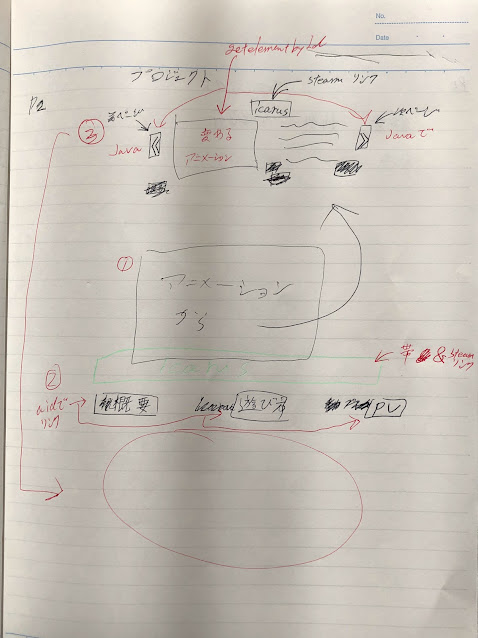 No.
Date
getelementbyId
プロジェクト
steam リンク
P2
前ページ
icarus
次ページ
③
Java
変わる
アニメーション
Javaで
①
アニメーション
から
帯 & steam
リンク
②
aidで
リンク
概要
遊び方
PV